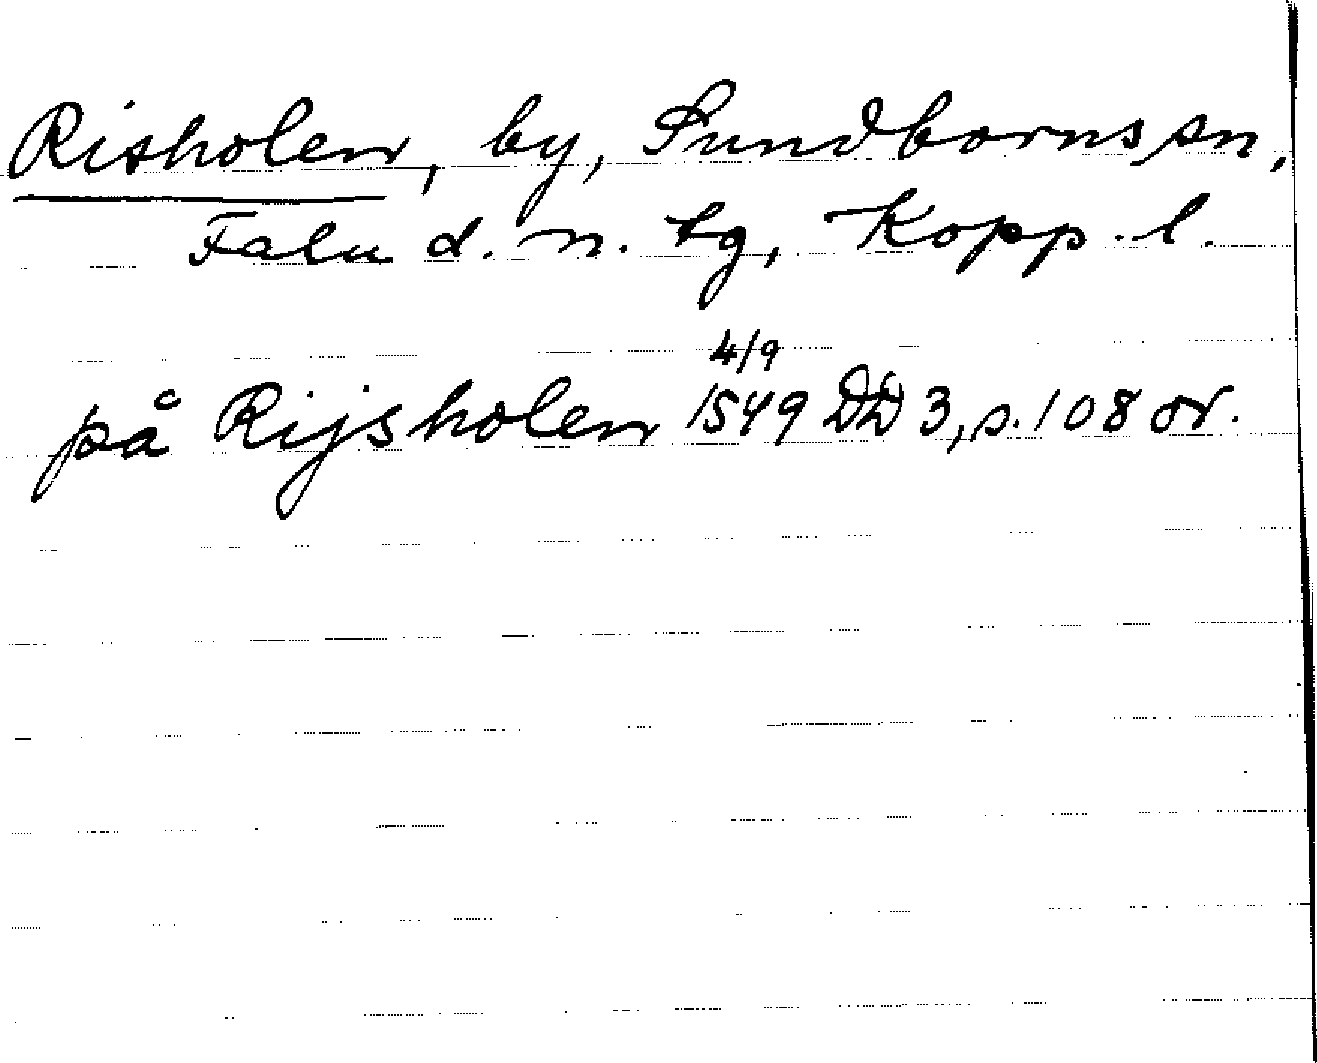 Risholen, by, Sundborns sn,
Falu d. n. tg, Kopp. l.
på Rijsholen 4/9 1549 DD 3, s. 108 or.